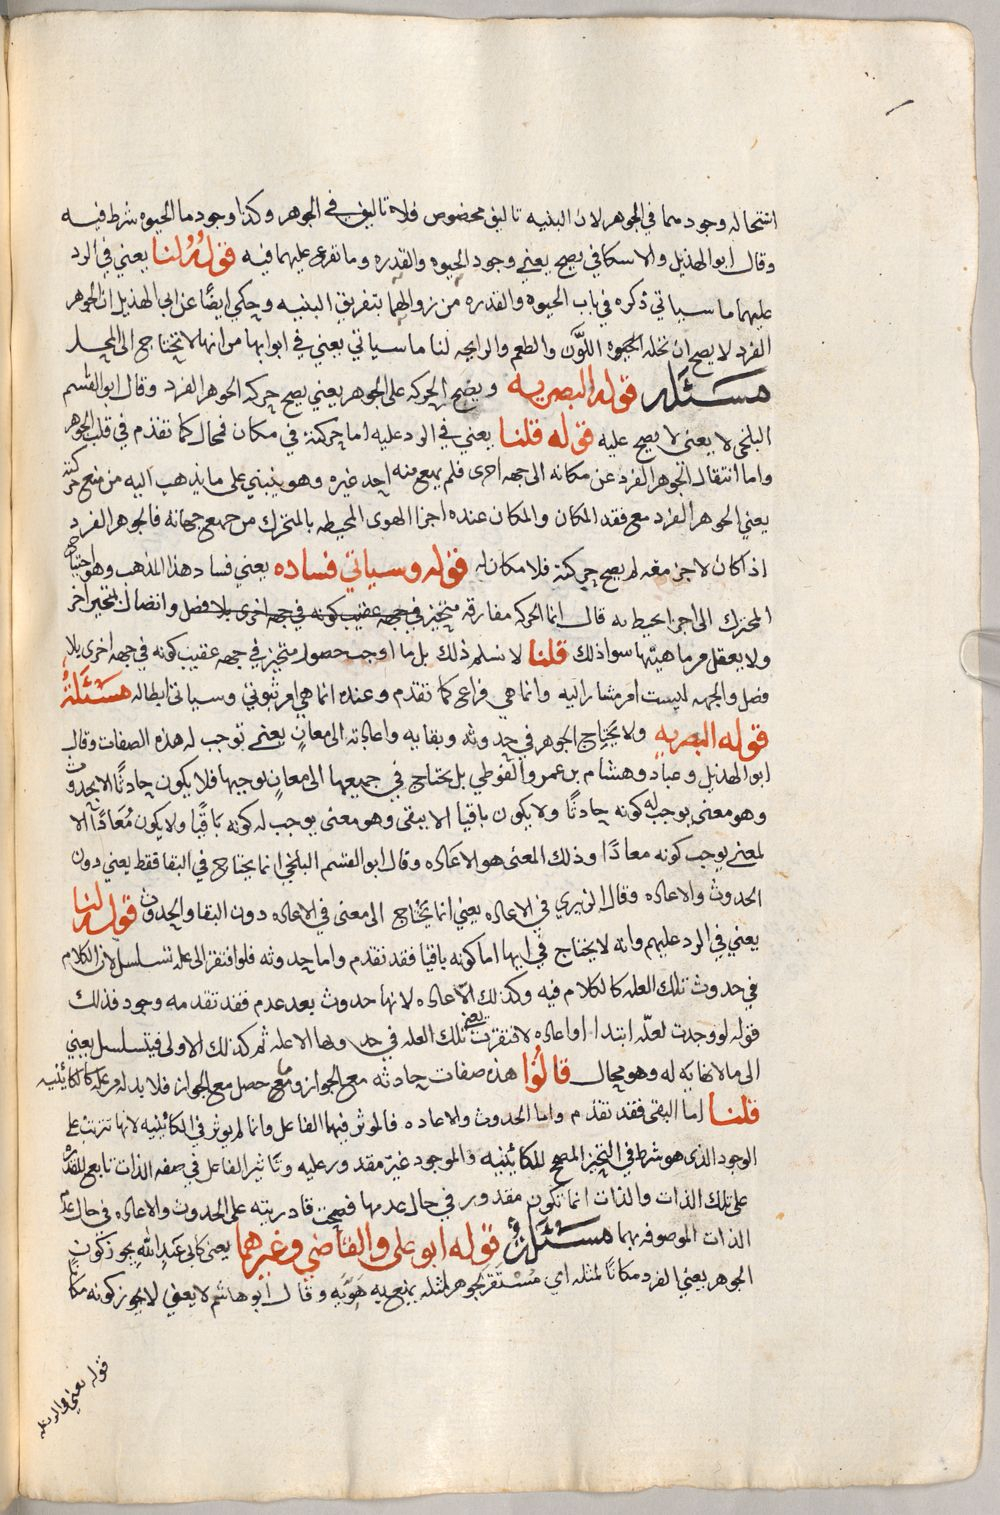 استحاله وجود مما في الجوهر لان البنيه تاليف مخصوص فلا تاليف في الجوهر وكذا وجود ما الحيوه شرط فيه
وقال ابو الهذيل والاسكافي يصح يعني وجود الحيوه والقدره وما تفرع عليهما فيه قوله لنا يعني في الرد
عليهما ما سياتي ذكره في باب الحيوه والقدره من زوالهما بتفريق البنيه وحكي ايضًا عن ابي الهذيل ان الجوهر
الفرد لا يصح ان تحله الحيوه اللوَّن والطعم والرايحه لنا ما سياتي يعني في ابوابها من انها لا تحتاج الى المحل
مسئله قوله البصريه ويصح الحركه على الجوهر يعني يصح حركه الجوهر الفرد وقال ابو القسم
البلخي لا يعني لا يصح عليه قوله قلنا يعني في الرد عليه اما حركته في مكان فمحال كما تقدم في قلب الجوهر
واما انتقال الجوهر الفرد عن مكانه الى جهه اخرى فلم يمنع منه احد غيره وهو ينبني على ما يذهب اليه من منع حركته
يعني الجوهر الفرد مع فقد المكان والمكان عنده اجزا الهوى المحيطه بالمتحرك من جميع جهاته فالجوهر الفرد
اذا كان لا جز معه لم يصح حركته فلا مكان له قوله وسياتي فساده يعني فساد هذا المذهب وهو احتياج
المتحرك الى اجزا يحيط به قال انما الحركه مفارقة متحيز في جهه عقيب كونه في جهه اخرى بلا فصل واتصال بمتحيز اخر
ولا يعقل من ماهيتها سوا ذلك قلنا لا نسلم ذلك بل ما اوجب حصول متحيز في جهه عقيب كونه في جهه اخرى بلا
فصل والجهه ليست امر مشار اليه وانما هي فراغ كما تقدم وعنده انما هي امر ثبوتي وسياتي ابطاله مسئلة
قوله البصريه ولا يحتاج الجوهر في حدوثه وبقايه واعادته الى معانٍ يعني توجب له هذه الصفات وقال
ابو الهذيل وعباد وهشام بن عمرو الفوطي بل يحتاج في جميعها الى معانٍ توجبها فلا يكون حادثًا الا بحدوث
وهو معنى يوجب له كونه حادثًا ولا يكون باقيا الا ببقى وهو معنى يوجب له كونه باقيًا ولا يكون مُعَادًا الا
لمعنى يوجب كونه معادًا وذلك المعنى هو الاعاده وقال ابو القسم البلخي انما يحتاج في البقا فقط يعني دون
الحدوث والاعاده وقال النويري في الاعاده يعني انما يحتاج الى معنى في الاعاده دون البقا والحدوث قوله لنا
يعني في الرد عليهم وانه لا يحتاج في ايها اما كونه باقيا فقد تقدم واما حدوثه فلو افتقر الى عله تسلسل لان الكلام
في حدوث تلك العله كالكلام فيه وكذلك الاعاده لانها حدوث بعد عدم فقد تقدمه وجود فذلك
قوله لو وجدت لعلّه ابتدا او اعاده لافتقرت يعني تلك العله في حدوثها الا عله ثم كذلك الاولى فيتسلسل يعني
الى ما لا نهايه له وهو محال قالوا هذه صفات حادثه مع الجواز وما حصل مع الجواز فلا بد له من عله كالكائنيه
قلنا اما البقى فقد تقدم واما الحدوث والاعاده فالموثر فيهما الفاعل وانما لم يوثر في الكائنيه لانها تترتب على
الوجود الذي هو شرط في التحيز المصحح للكائنيه والموجود غير مقدور عليه وتاثير الفاعل في صفه الذات تابع للقدره
على تلك الذات والذات انما تكون مقدور في حال عدمها فصحت قادريته على الحدوث والاعاده في حال عدم
الذات الموصوفه بهما مسئلة قوله ابو علي والقاضي وغيرهما يعني كابي عَبدِ اللّهِ يجوز كون
الجوهر يعني الفرد مكانًا لمثله اي مُسْتَقَر لجوهر مثله يمنع به هَوَّيه وقال ابو هاشم لا يعني لا يجوز كونه مكانًا
قوله يعني والرد عليه